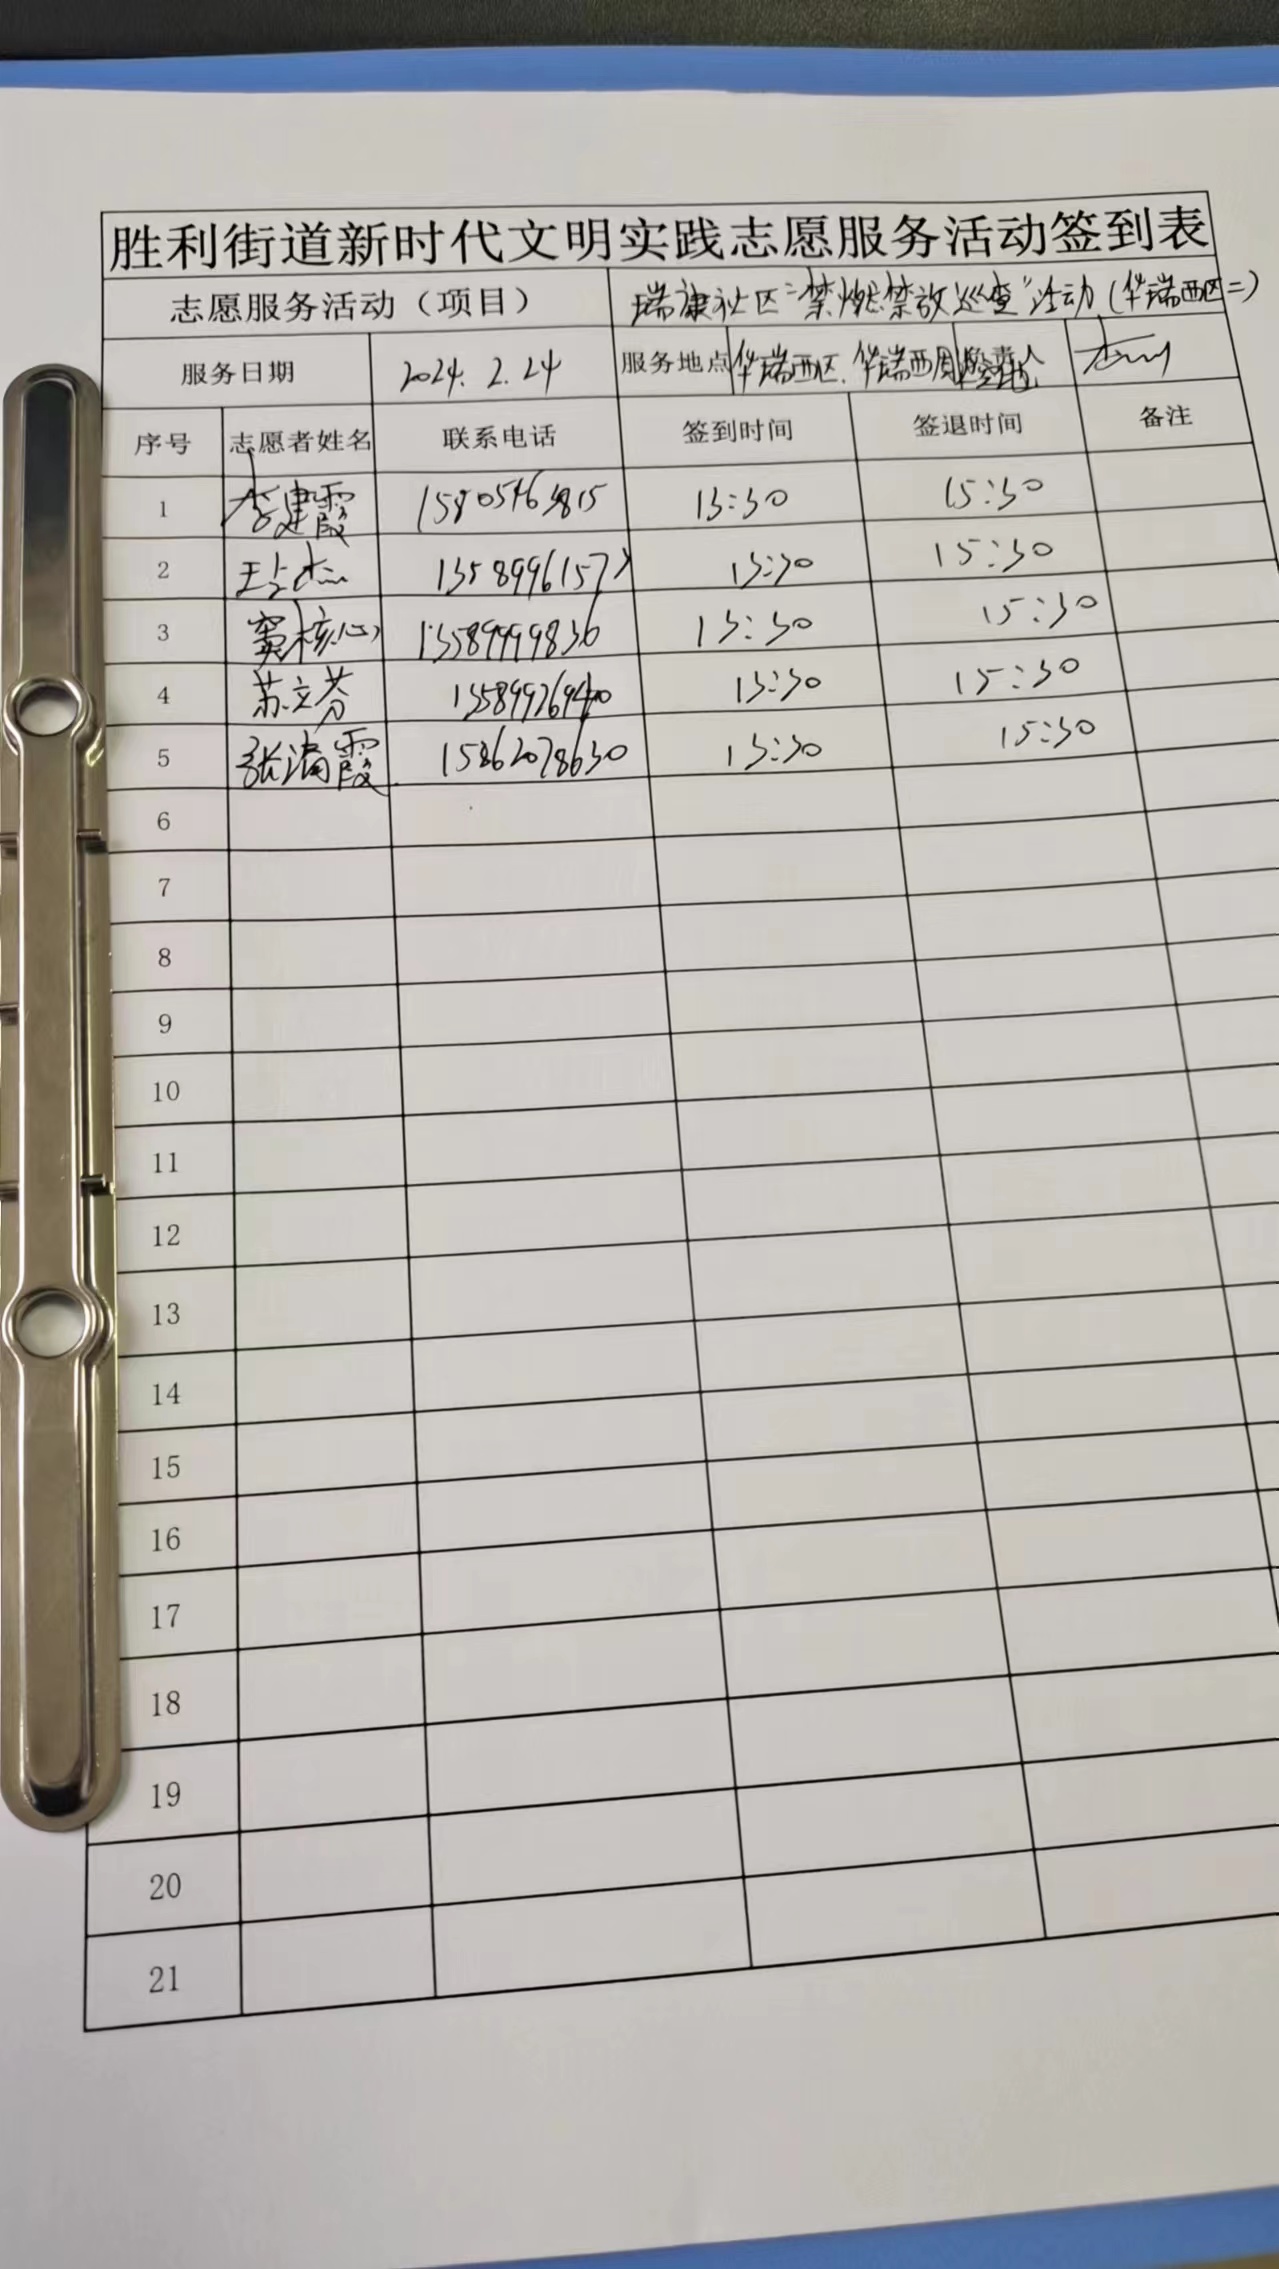 胜利街道新时代文明实践志愿服务活动签到表
志愿服务活动（项目） 瑞康社区“禁燃禁放巡查”活动（华瑞西区二）
服务日期 2024.2.24 服务地点 华瑞西区.华瑞西周 负责人
序号 志愿者姓名 联系电话 签到时间 签退时间 备注
1 李建霞 13:30 15:30
2 13:30 15:30
3 窦核心 13589999836 13:30 15:30
4 苏立芬 13:30 15:30
5 张清霞 15862078630 13:30 15:30
6
7
8
9
10
11
12
13
14
15
16
17
18
19
20
21